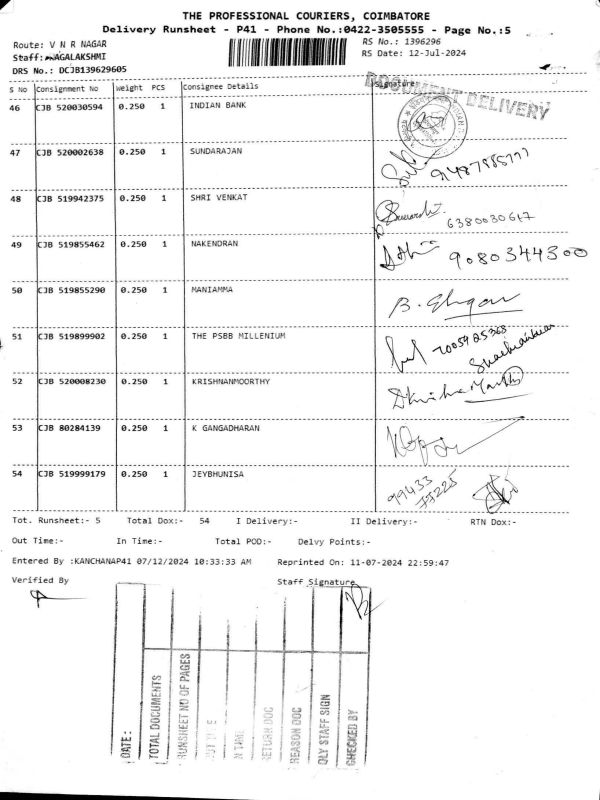 THE PROFESSIONAL COURIERS, COIMBATORE
Delivery Runsheet - P41 - Phone No.:0422-3505555 - Page No.:5
Route: V N R NAGAR RS No.: 1396296
Staff: NAGALAKSHMI RS Date: 12-Jul-2024
DRS No.: DCJB139629605
S No Consignment No Weight PCS Consignee Details Signature
DOCUMENT DELIVERY
46 CJB 520030594 0.250 1 INDIAN BANK
47 CJB 520002638 0.250 1 SUNDARAJAN
48 CJB 519942375 0.250 1 SHRI VENKAT 6380030647
49 CJB 519855462 0.250 1 NAKENDRAN 9080344300
50 CJB 519855290 0.250 1 MANIAMMA
51 CJB 519899902 0.250 1 THE PSBB MILLENIUM
52 CJB 520008230 0.250 1 KRISHNANMOORTHY
53 CJB 80284139 0.250 1 K GANGADHARAN
54 CJB 519999179 0.250 1 JEYBHUNISA 99433
Tot. Runsheet:- 5 Total Dox:- 54 I Delivery:- II Delivery:- RTN Dox:-
Out Time:- In Time:- Total POD:- Delvy Points:-
Entered By :KANCHANAP41 07/12/2024 10:33:33 AM Reprinted On: 11-07-2024 22:59:47
Verified By Staff Signature
DATE :
TOTAL DOCUMENTS
RUNSHEET NO OF PAGES
N TIME
RETURN DOC
REASON DOC
DLY STAFF SIGN
CHECKED BY